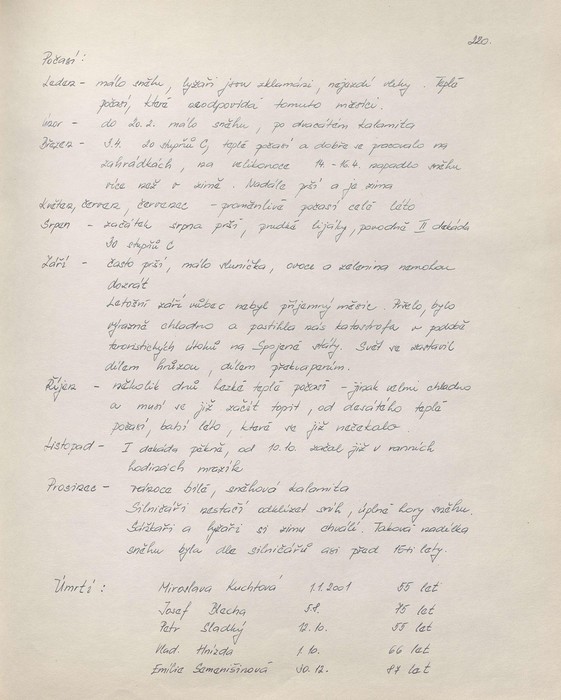 220.
Počasí:
Leden - málo sněhu, lyžaři jsou zklamáni, nejezdí vleky. Teplé
počasí, které neodpovídá tomuto měsíci.
Únor - do 20.2. málo sněhu, po dvacátém kalamita
Březen - 3.4. 20 stupňů C, teplé počasí a dobře se pracovalo na
zahrádkách, na velikonoce 14.-16.4. napadlo sněhu
více než v zimě. Nadále prší a je zima
Květen, červen, červenec - proměnlivé počasí celé léto
Srpen - začátek srpna prší, prudké lijáky, povodně II dekáda
30 stupňů C
Září - často prší, málo sluníčka, ovoce a zelenina nemohou
dozrát
Letošní září vůbec nebyl příjemný měsíc. Pršelo, bylo
výrazně chladno a postihla nás katastrofa v podobě
teroristických útoků na Spojené státy. Svět se zastavil
dílem hrůzou, dílem překvapením.
Říjen - několik dnů hezké teplé počasí - jinak velmi chladno
a musí se již začít topit, od desátého teplé
počasí, babí léto, které se již nečekalo.
Listopad - I dekáda pěkně, od 10.10. začal již v ranních
hodinách mrazík
Prosinec - vánoce bílé, sněhová kalamita
Silničáři nestačí odklízet sníh, úplné hory sněhu.
Sáňkaři a lyžaři si zimu chválí. Taková nadílka
sněhu byla dle silničářů asi před 15ti lety.
Úmrtí: Miroslava Kuchtová 1.1.2001 55 let
Josef Blecha 5.8. 75 let
Petr Sladký 12.10. 55 let
Vlad. Hnízda 1.10. 66 let
Emilie 30.12. 87 let